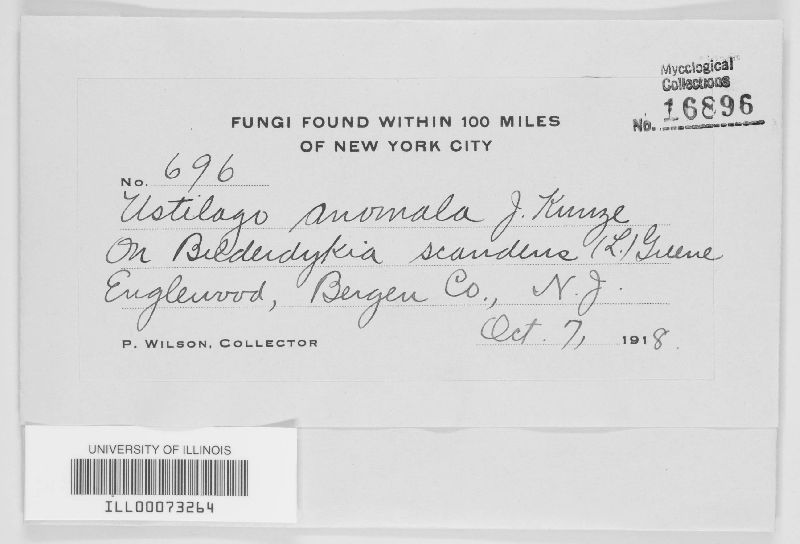 Mycological
Collections
No. 16896
FUNGI FOUND WITHIN 100 MILES
OF NEW YORK CITY
No. 696
Ustilago anomala J. Kunze
On Bilderdykia scandens (L.) Greene
Englewood, Bergen Co., N. J.
Oct. 7, 1918.
P. WILSON, COLLECTOR
UNIVERSITY OF ILLINOIS
ILL00073264